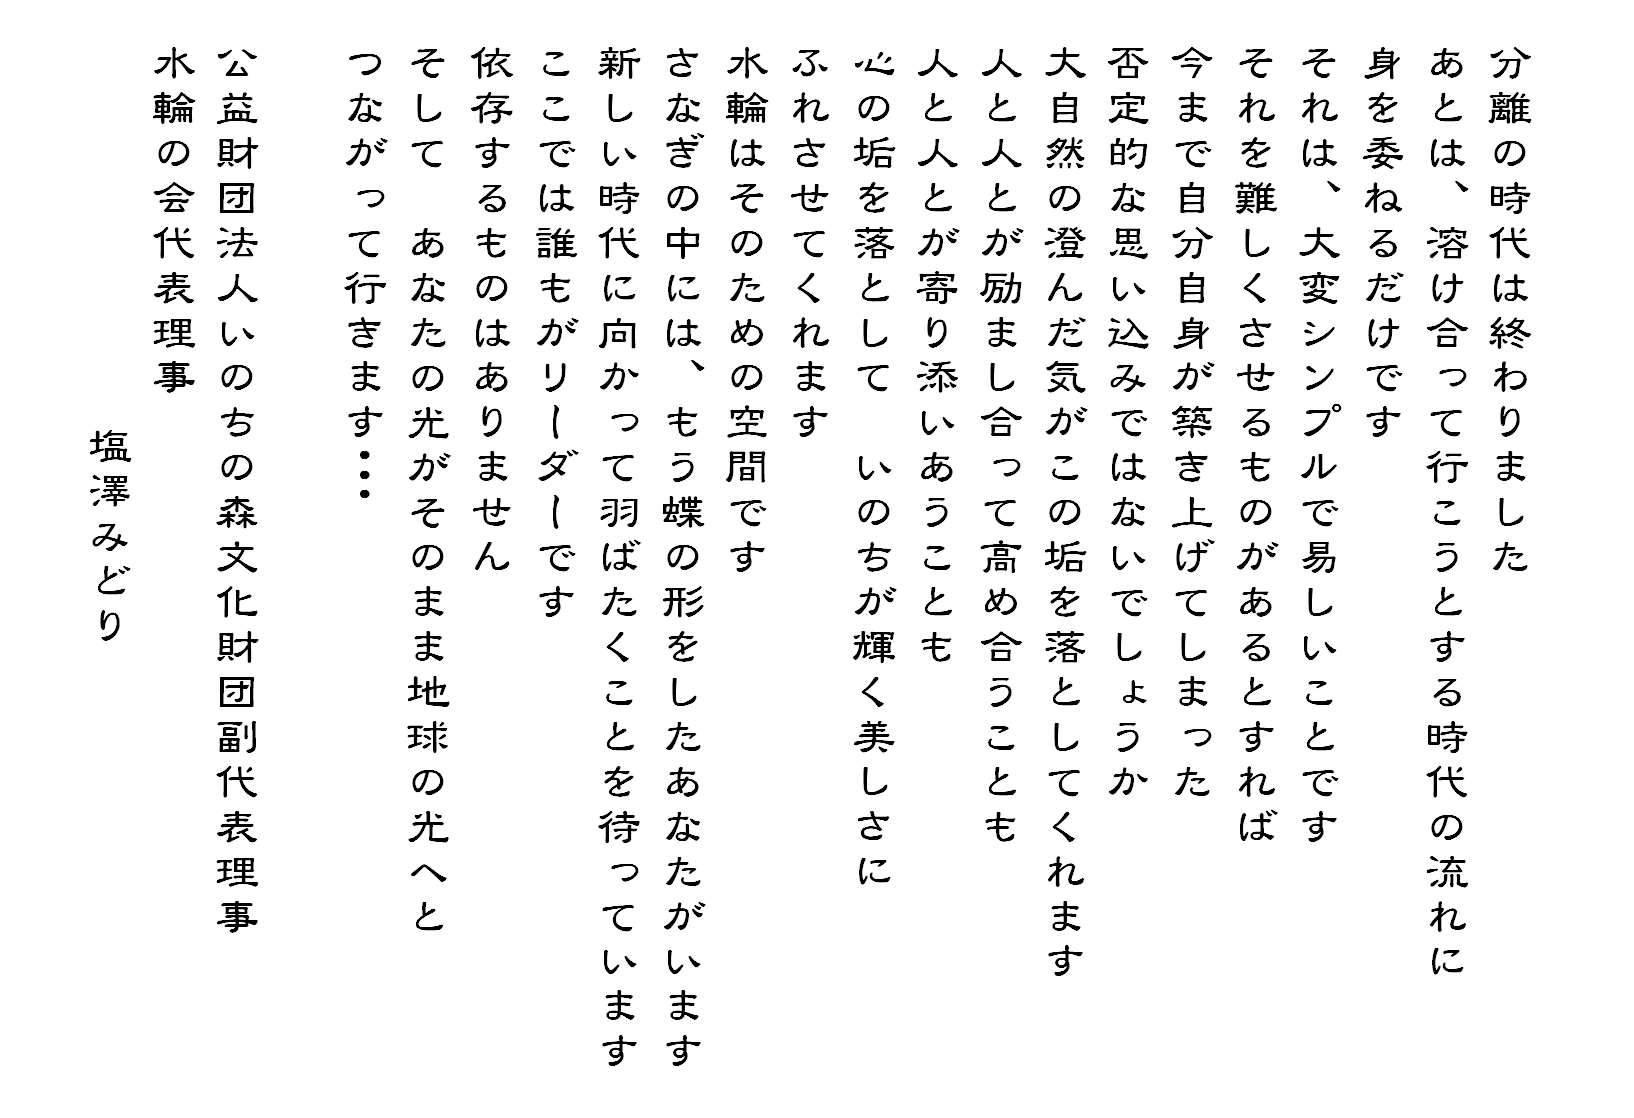 分離の時代は終わりました
あとは、溶け合って行こうとする時代の流れに
身を委ねるだけです
それは、大変シンプルで易しいことです
それを難しくさせるものがあるとすれば
今まで自分自身が築き上げてしまった
否定的な思い込みではないでしょうか
大自然の澄んだ気がこの垢を落としてくれます
人と人とが励まし合って高め合うことも
人と人とが寄り添いあうことも
心の垢を落として　いのちが輝く美しさに
ふれさせてくれます
水輪はそのための空間です
さなぎの中には、もう蝶の形をしたあなたがいます
新しい時代に向かって羽ばたくことを待っています
ここでは誰もがリーダーです
依存するものはありません
そして　あなたの光がそのまま地球の光へと
つながって行きます…
公益財団法人いのちの森文化財団副代表理事
水輪の会代表理事
塩澤みどり